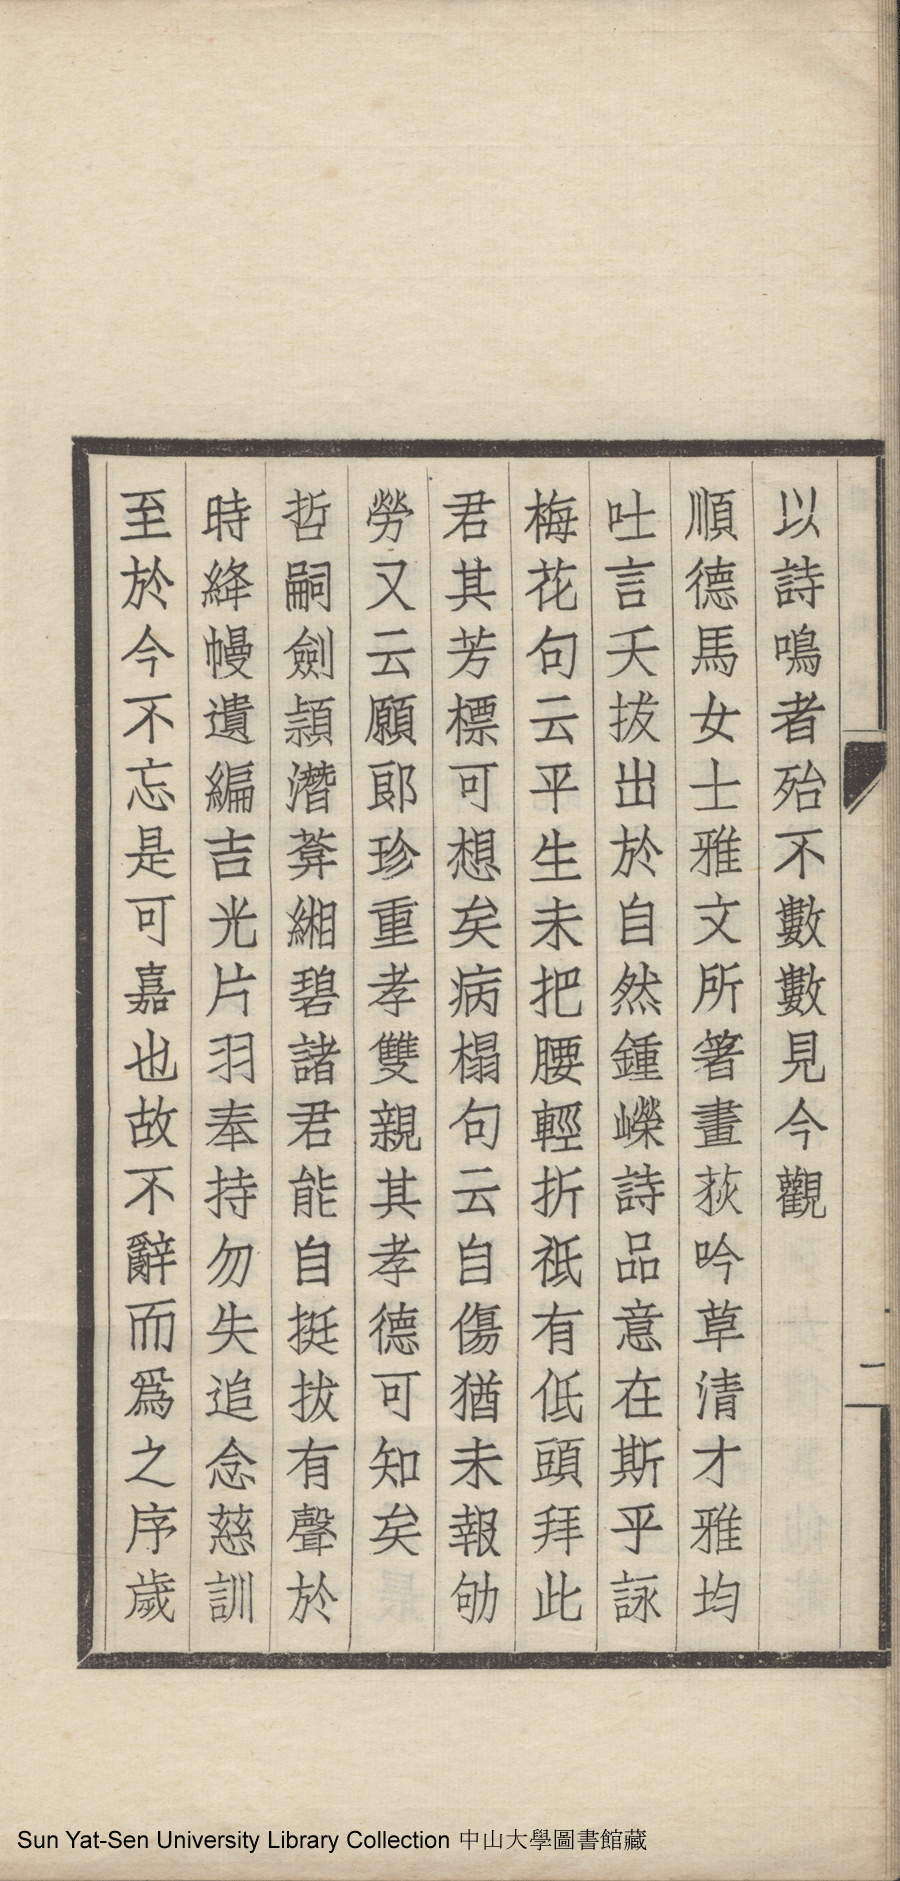 以詩鳴者殆不數數見今觀
順德馬女士雅文所箸畫荻吟草清才雅均
吐言夭拔出於自然鍾嶸詩品意在斯乎詠
梅花句云平生未把腰輕折祇有低頭拜此
君其芳標可想矣病榻句云自傷猶未報劬
勞又云願郎珍重孝雙親其孝德可知矣
哲嗣劍頴潛葊緗碧諸君能自挺拔有聲於
時絳幔遺編吉光片羽奉持勿失追念慈訓
至於今不忘是可嘉也故不辭而爲之序歲
一
Sun Yat-Sen University Library Collection 中山大學圖書館藏